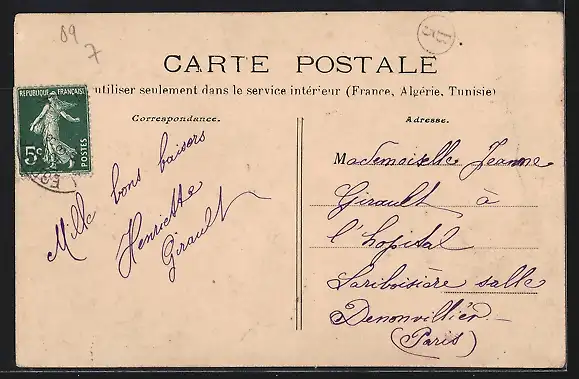 89
7
CARTE POSTALE
utiliser seulement dans le service intérieur (France, Algérie, Tunisie)
RÉPUBLIQUE FRANÇAISE
5c
POSTES
Correspondance.
Adresse.
Mille bons baisers
Henriette
Girault
Mademoiselle Jeanne
Girault à
l'hopital
Lariboisière salle
Denonvillier
(Paris)